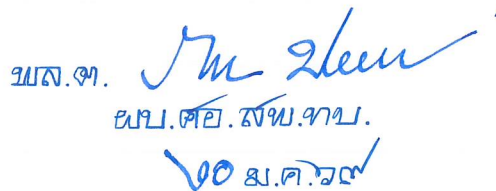 พล.ต.
ผบ.ศอ.สพ.ทบ.
๒๐ ม.ค. ๖๙